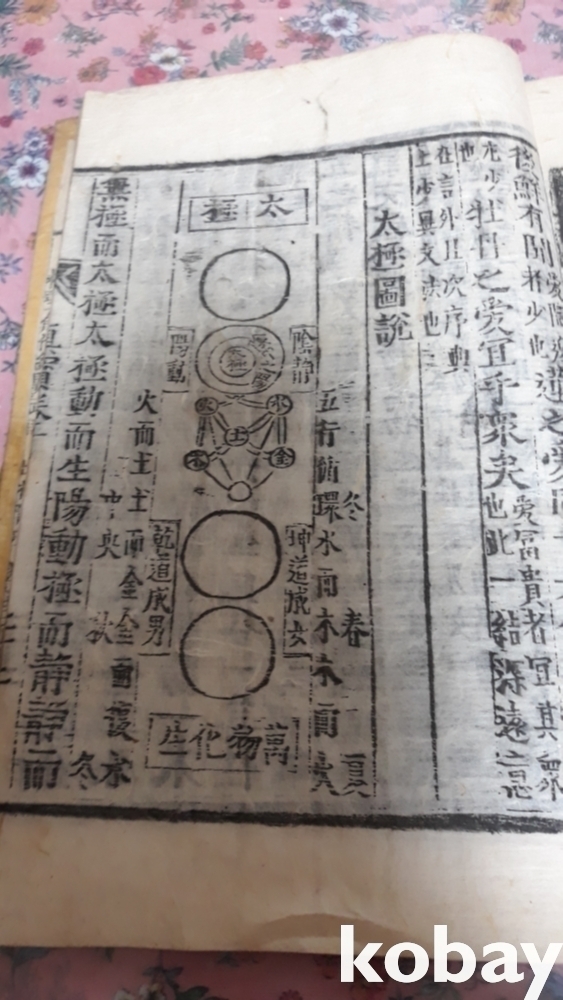 後鮮有聞
者少也
蓮之愛同
牡丹之愛宜乎衆矣
愛富貴者宜其衆
也此一結深遠之思
在言外且次序與
上少異文法也
太極圖說
太極
陰静
陽動
水
火
土
木
金
五行循環水而木木而
冬
春
夏
坤道成女
乾道成男
火而土土
而金金而復水
秋
冬
萬物化生
無極而太極太極動而生陽動極而静静而
kobay